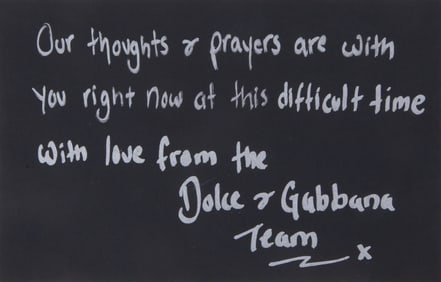 Our thoughts & prayers are with
you right now at this difficult time
with love from the
Dolce & Gabbana
Team x